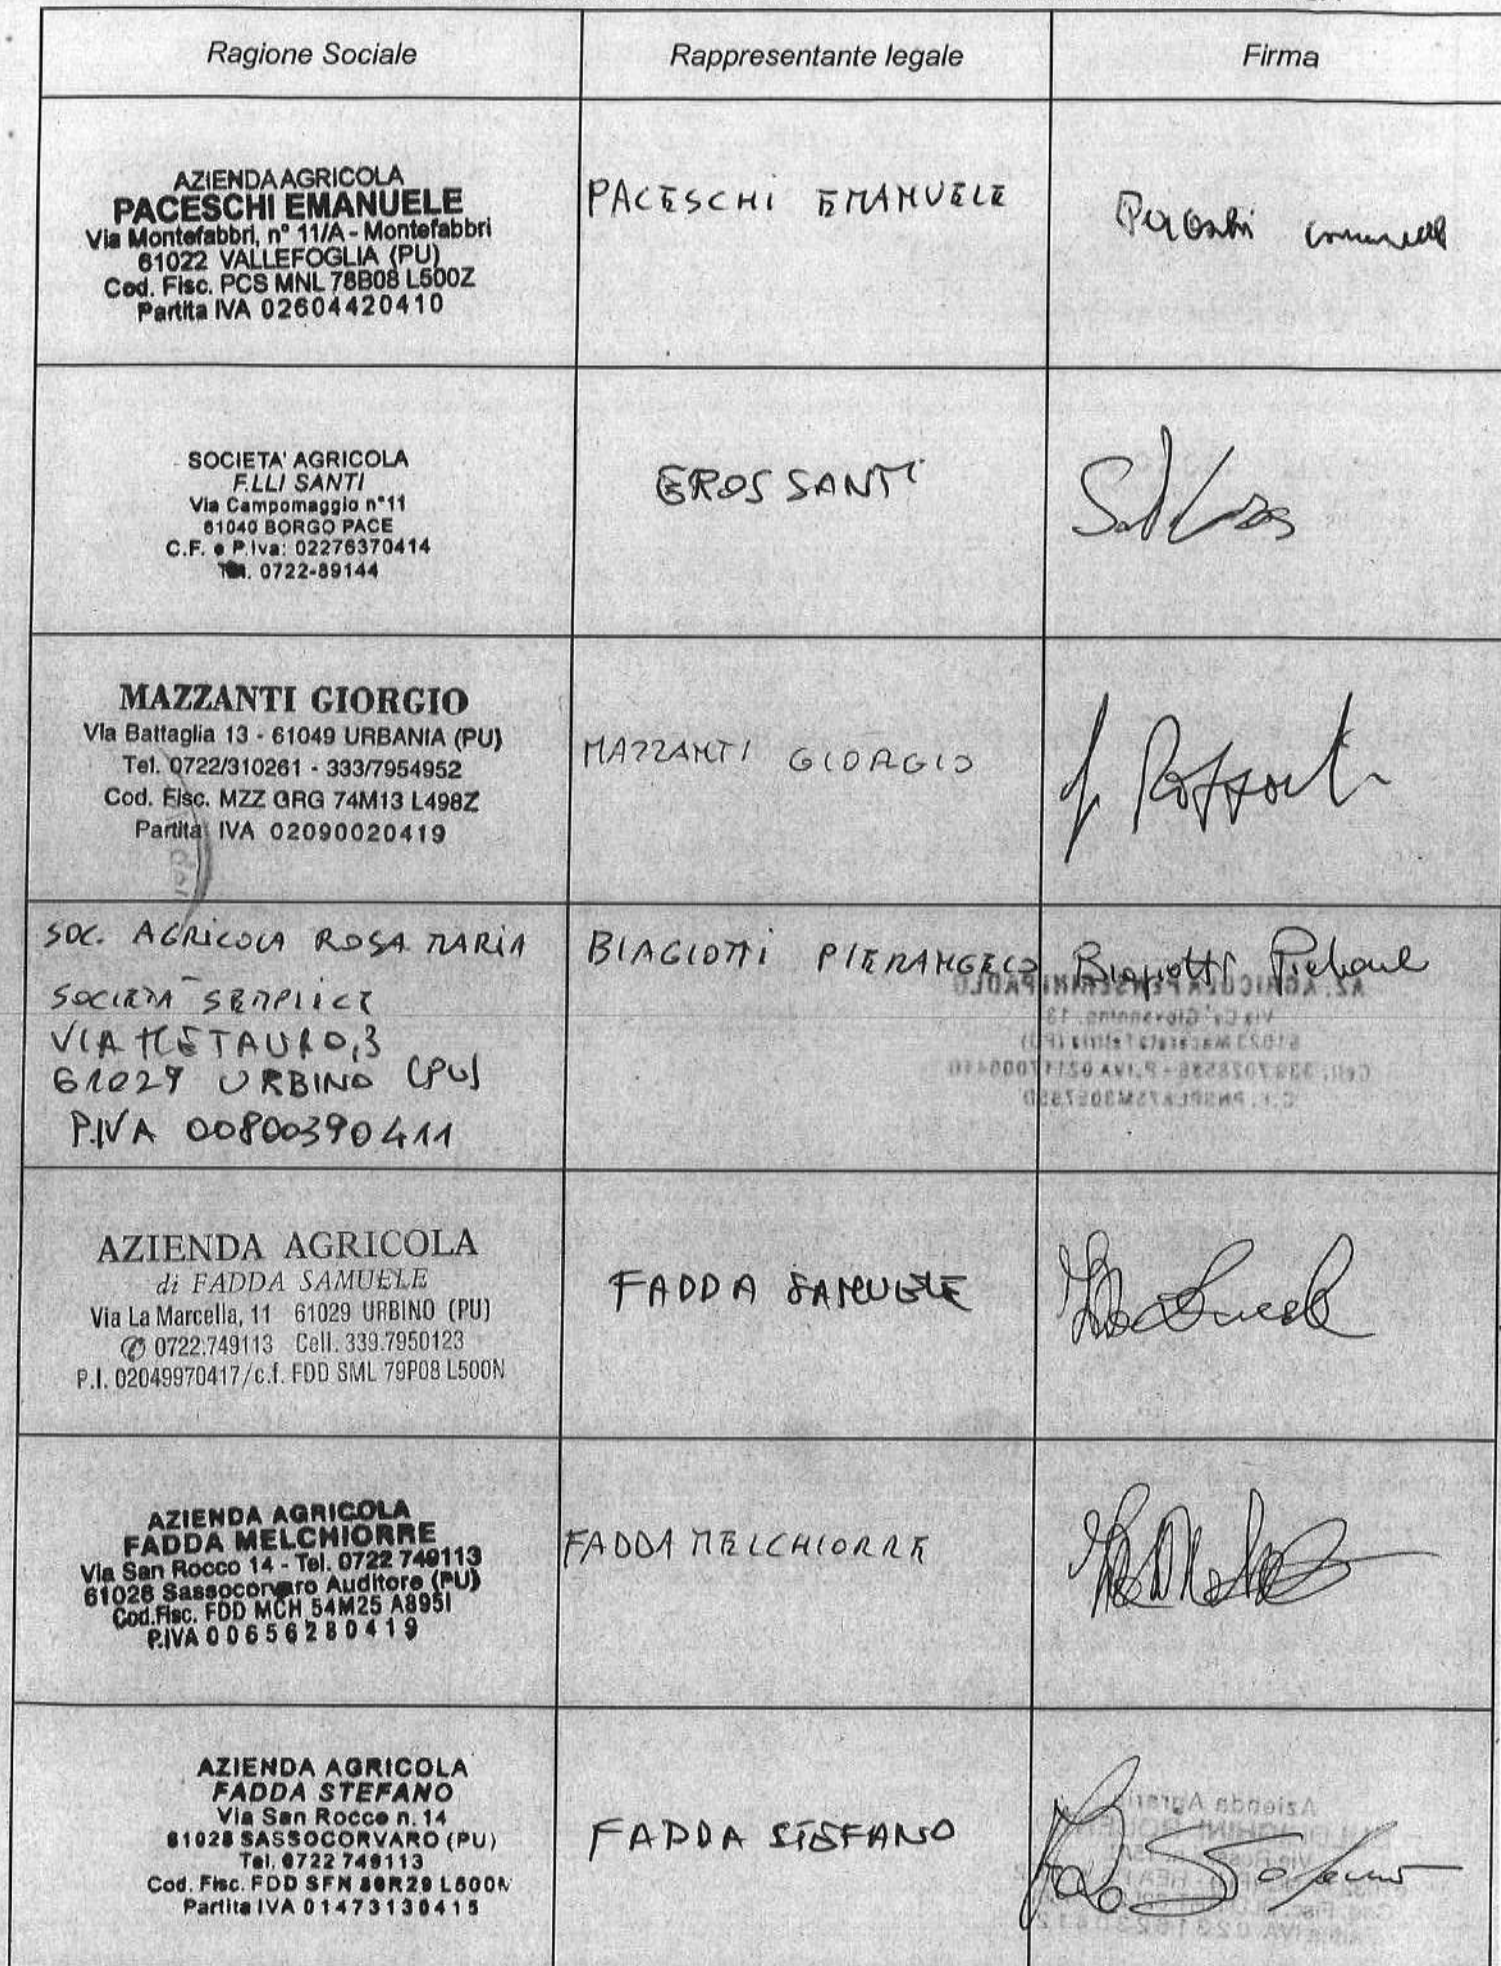 Ragione Sociale
Rappresentante legale
Firma
AZIENDA AGRICOLA
PACESCHI EMANUELE
Via Montefabbri, n° 11/A - Montefabbri
61022 VALLEFOGLIA (PU)
Cod. Fisc. PCS MNL 78B08 L500Z
Partita IVA 02604420410
PACESCHI EMANUELE
SOCIETA' AGRICOLA
F.LLI SANTI
Via Campomaggio n°11
61040 BORGO PACE
C.F. e P.Iva: 02276370414
Tel. 0722-89144
EROS SANTI
MAZZANTI GIORGIO
Via Battaglia 13 - 61049 URBANIA (PU)
Tel. 0722/310261 - 333/7954952
Cod. Fisc. MZZ GRG 74M13 L498Z
Partita IVA 02090020419
MAZZANTI GIORGIO
SOC. AGRICOLA ROSA MARIA
SOCIETA' SEMPLICE
VIA METAURO, 3
61029 URBINO (PU)
P.IVA 00800390411
BIAGIOTTI PIERANGELO
Biagiotti
AZIENDA AGRICOLA
di FADDA SAMUELE
Via La Marcella, 11 61029 URBINO (PU)
✆ 0722.749113 Cell. 339.7950123
P.I. 02049970417/c.f. FDD SML 79P08 L500N
FADDA SAMUELE
AZIENDA AGRICOLA
FADDA MELCHIORRE
Via San Rocco 14 - Tel. 0722 749113
61028 Sassocorvaro Auditore (PU)
Cod.Fisc. FDD MCH 54M25 A895I
P.IVA 00656280419
FADDA MELCHIORRE
AZIENDA AGRICOLA
FADDA STEFANO
Via San Rocco n. 14
61028 SASSOCORVARO (PU)
Tel. 0722 749113
Cod. Fisc. FDD SFN 80R29 L500N
Partita IVA 01473130415
FADDA STEFANO